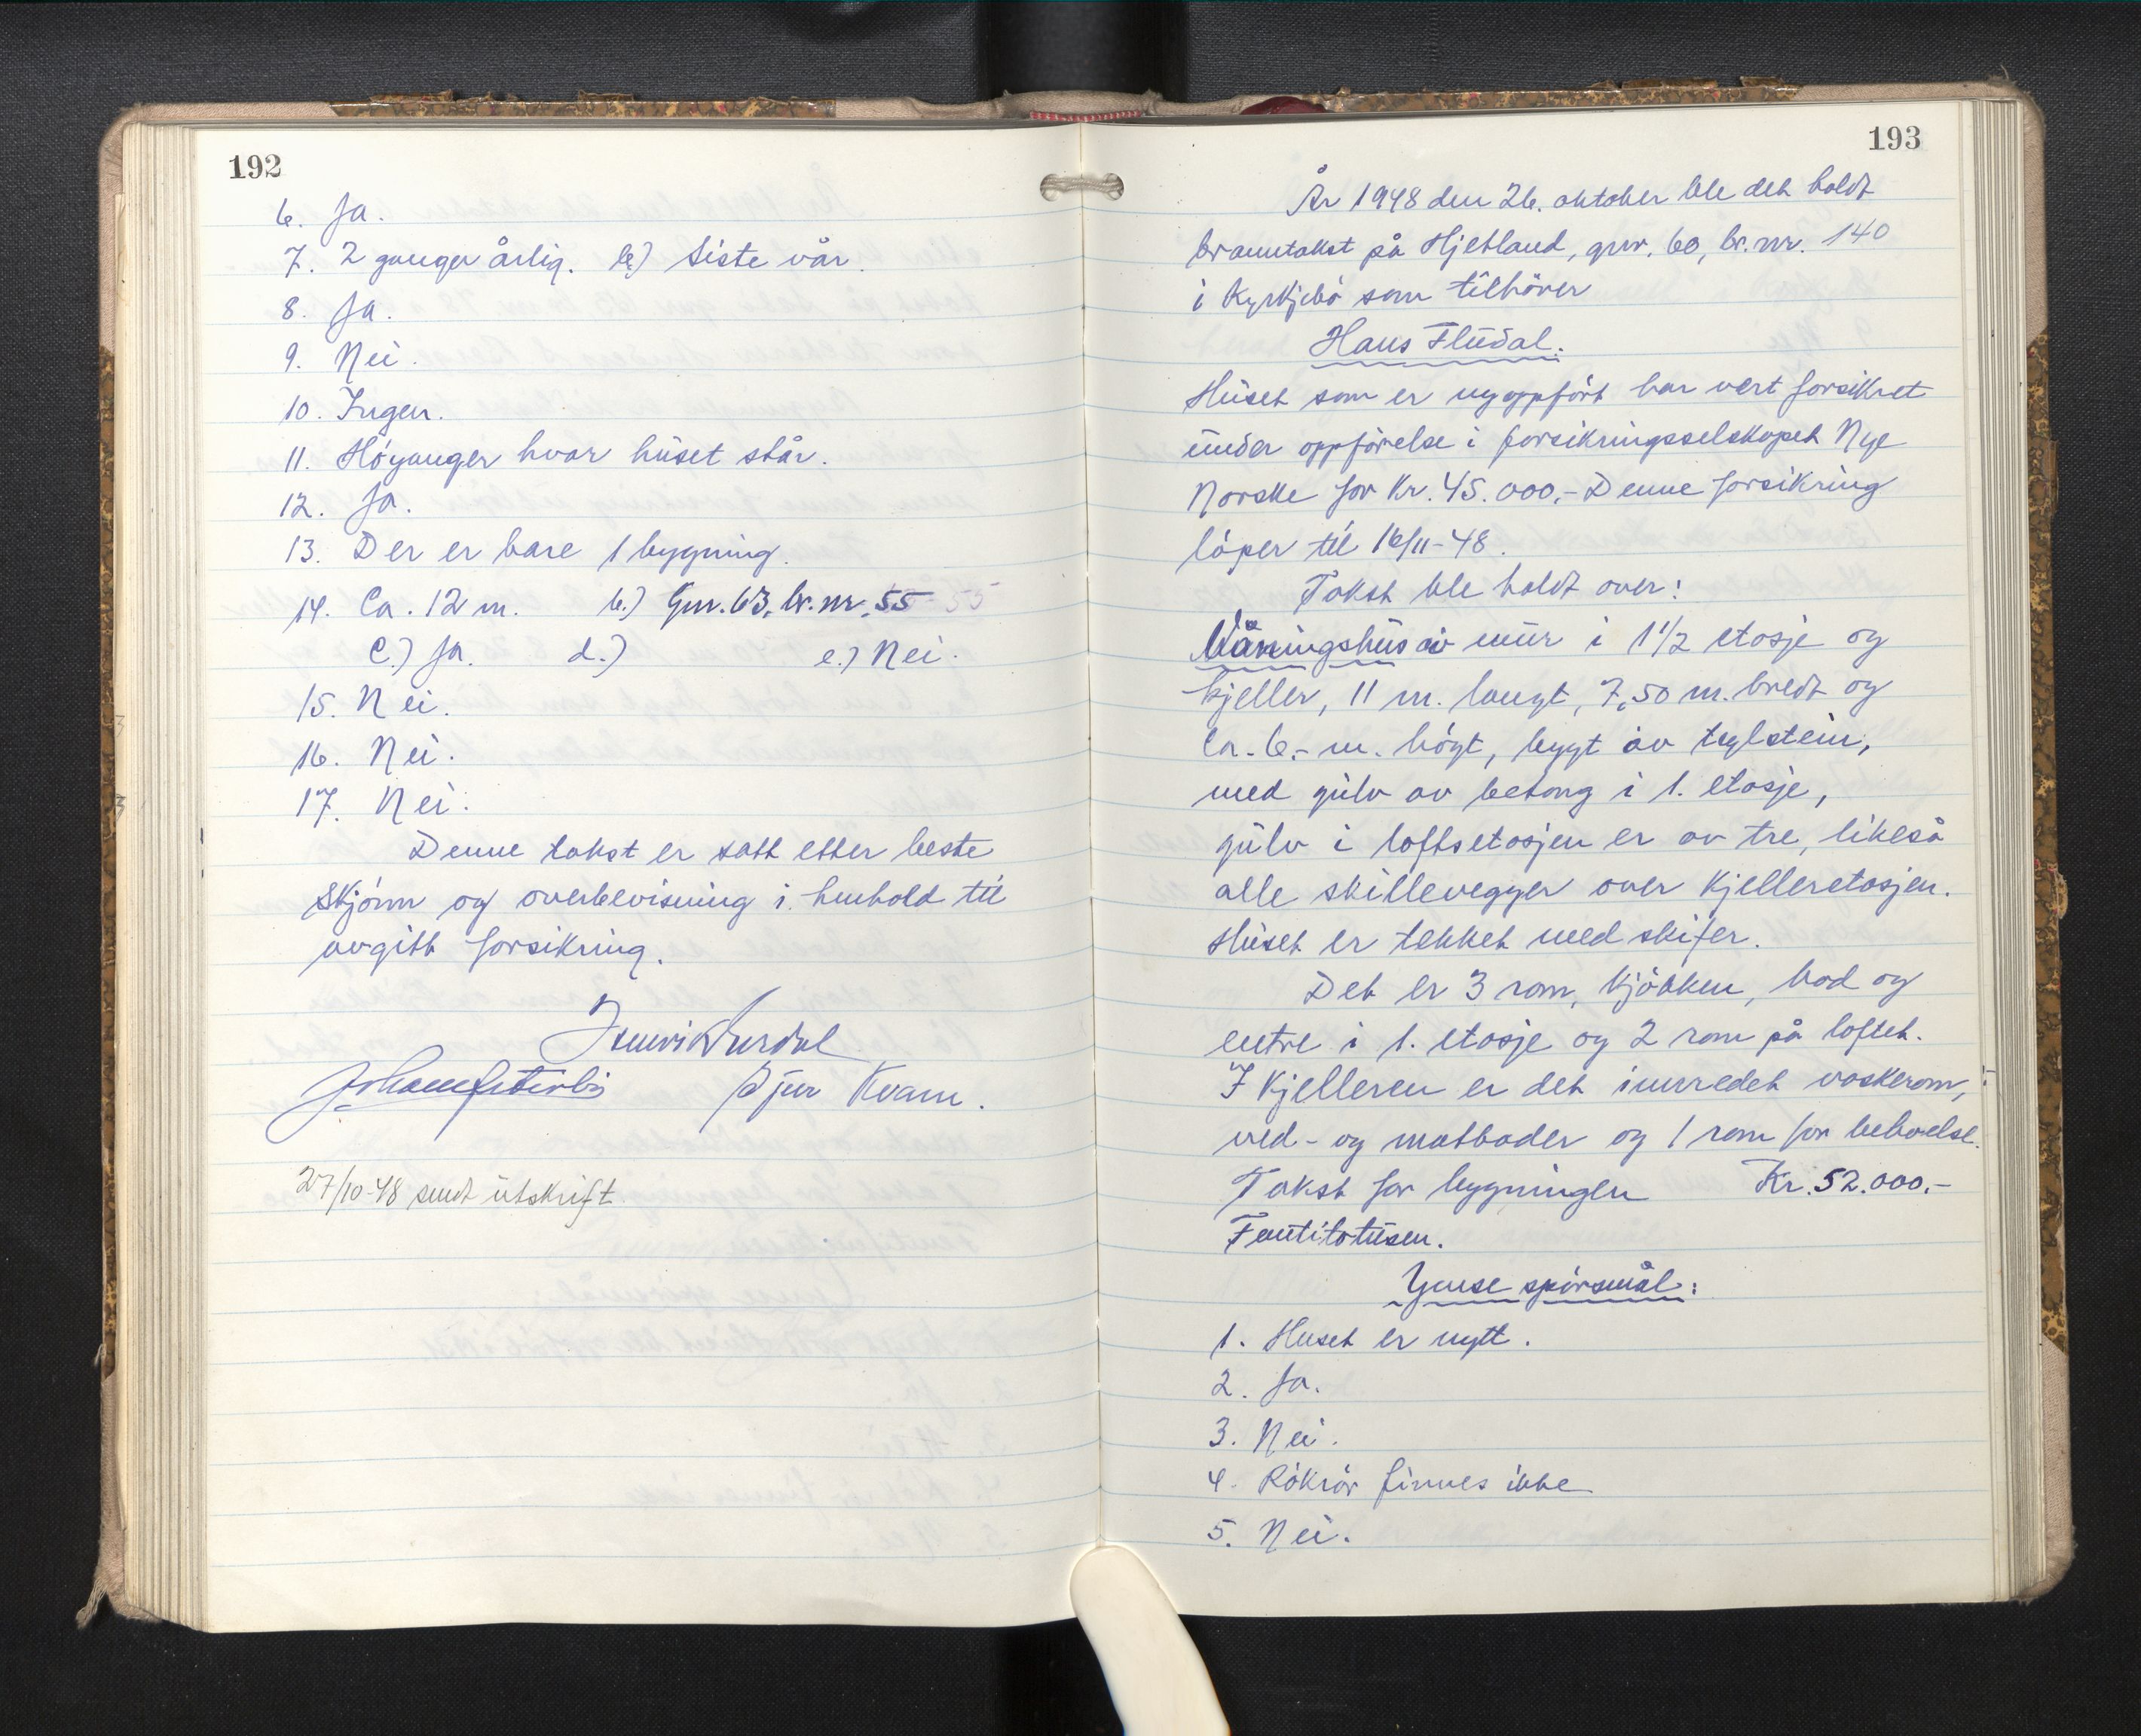 192
6. Ja.
7. 2 ganger årlig. b.) Siste vår.
8. Ja.
9. Nei.
10. Ingen.
11. Höyanger hvor huset står.
12. Ja.
13. Der er bare 1 bygning.
14. Ca. 12 m. b.) Gnr. 63, br. nr. 55 55
c.) Ja. d.) e.) Nei.
15. Nei.
16. Nei.
17. Nei.
Denne takst er satt etter beste
skjönn og overbevisning i henhold til
avgitt forsikring.
Sjur Kvam.
27/10-48 sendt utskrift.
193
År 1948 den 26. oktober ble det holdt
branntakst på Hjetland, gnr. 60, br. nr. 140
i Kyrkjebö som tilhörer
Hans Flüdal:
Huset som er nyoppfört har vert forsikret
under oppförelse i forsikringsselskapet Nye
Norske for kr. 45.000,- Denne forsikring
löper til 16/11-48.
Takst ble holdt over:
Våningshus av mur i 1 1/2 etasje og
kjeller, 11 m. langt, 7,50 m. bredt og
ca. 6.- m. högt, bygt av teglstein,
med gulv av betong i 1. etasje,
gulv i loftsetasjen er av tre, likeså
alle skillevegger over kjelleretasjen.
Huset er tekket med skifer.
Det er 3 rom, kjökken, bod og
entre i 1. etasje og 2 rom på loftet.
I kjelleren er det innredet vaskerom,
ved- og matboder og 1 rom for beboelse.
Takst for bygningen Kr. 52.000.-
Femtitotusen.
Ymse spörsmål:
1. Huset er nytt.
2. Ja.
3. Nei.
4. Rökrör finnes ikke
5. Nei.